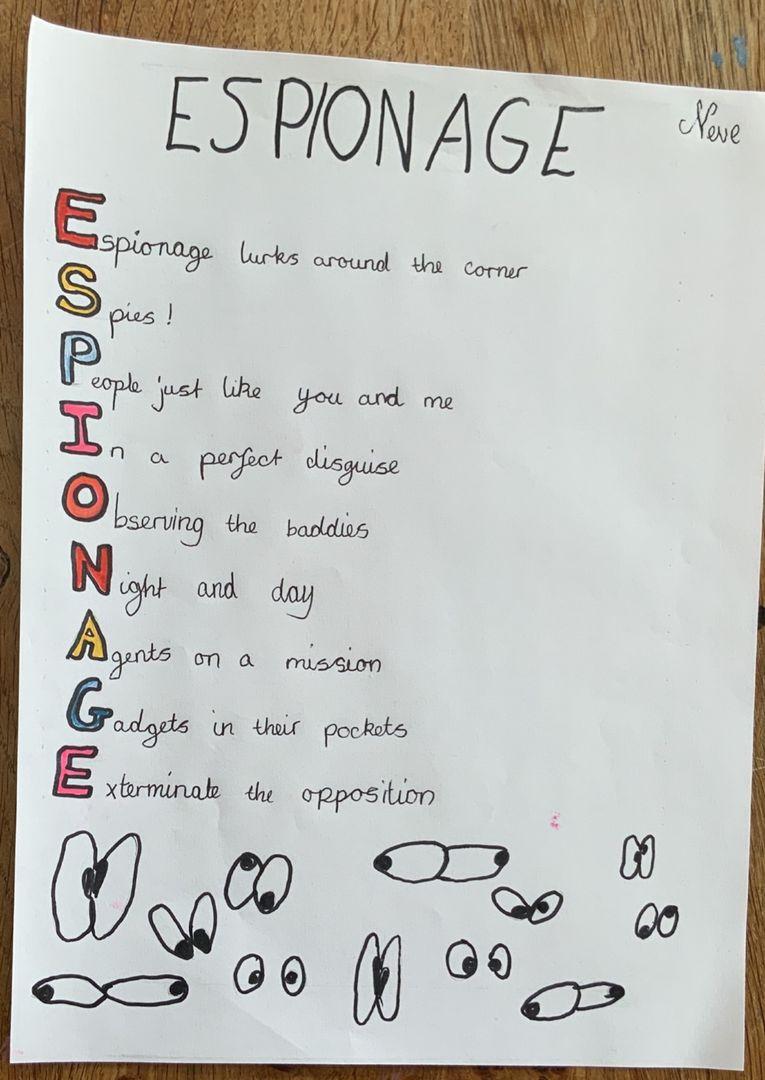 ESPIONAGE
Neve
Espionage lurks around the corner
Spies!
People just like you and me
In a perfect disguise
Observing the baddies
Night and day
Agents on a mission
Gadgets in their pockets
Exterminate the opposition